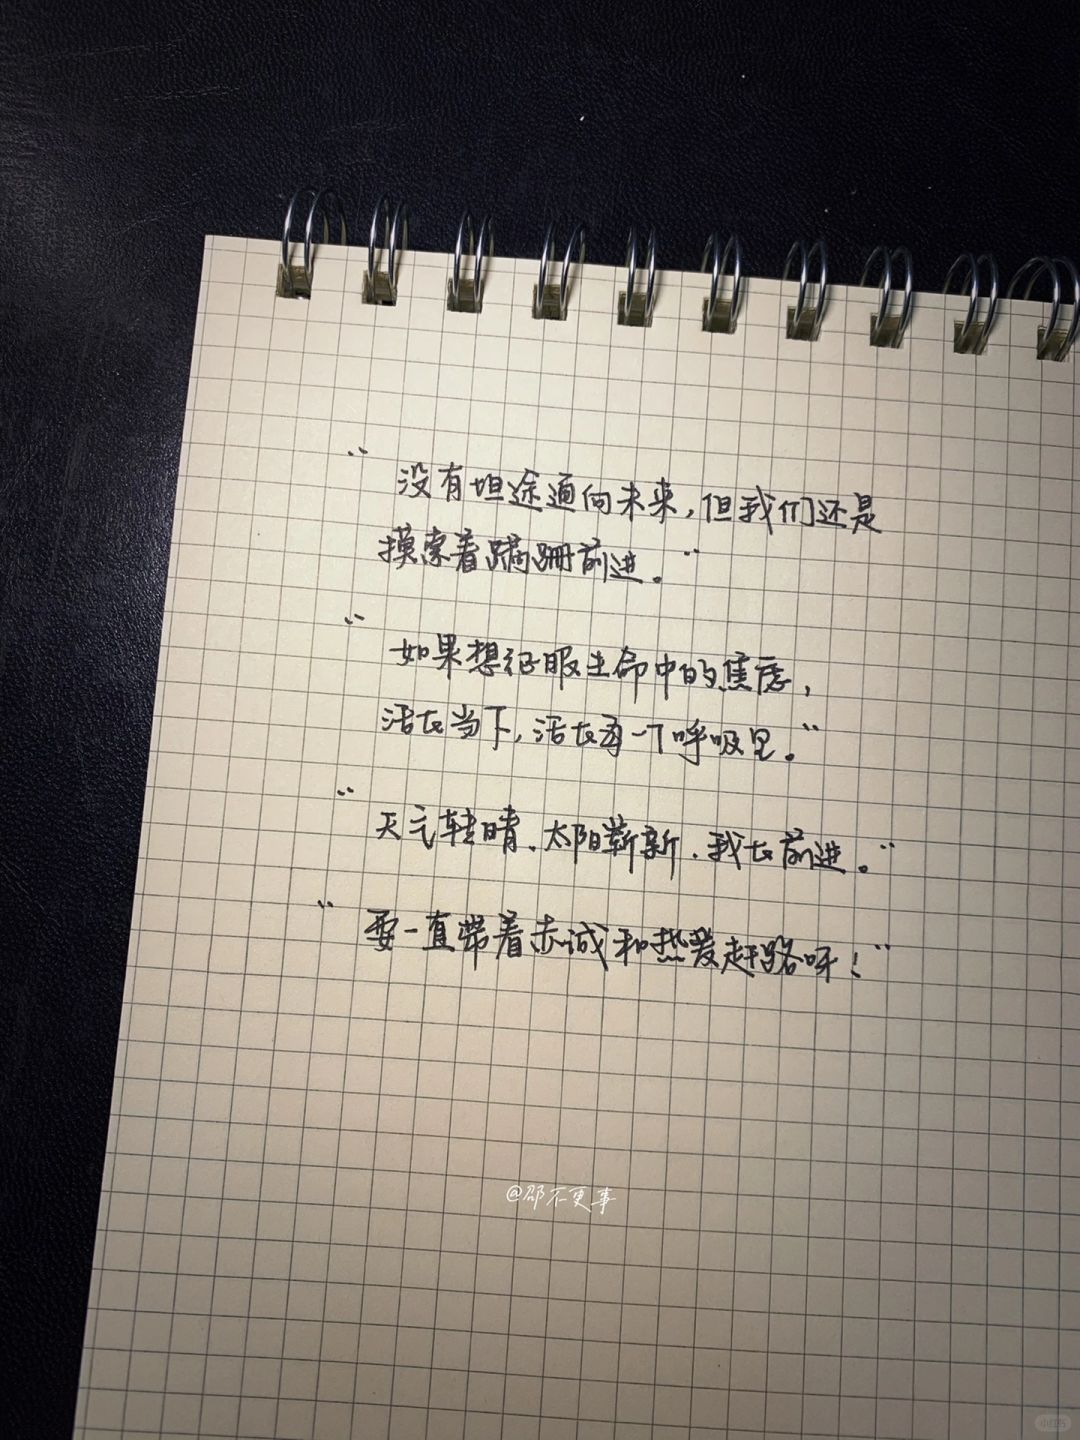 “没有坦途通向未来,但我们还是
摸索着蹒跚前进。”
“如果想征服生命中的焦虑,
活在当下,活在每一个呼吸里。”
“天气转晴.太阳崭新.我在前进。”
“要一直带着赤诚和热爱赶路呀!”
@邵不更事
小红书